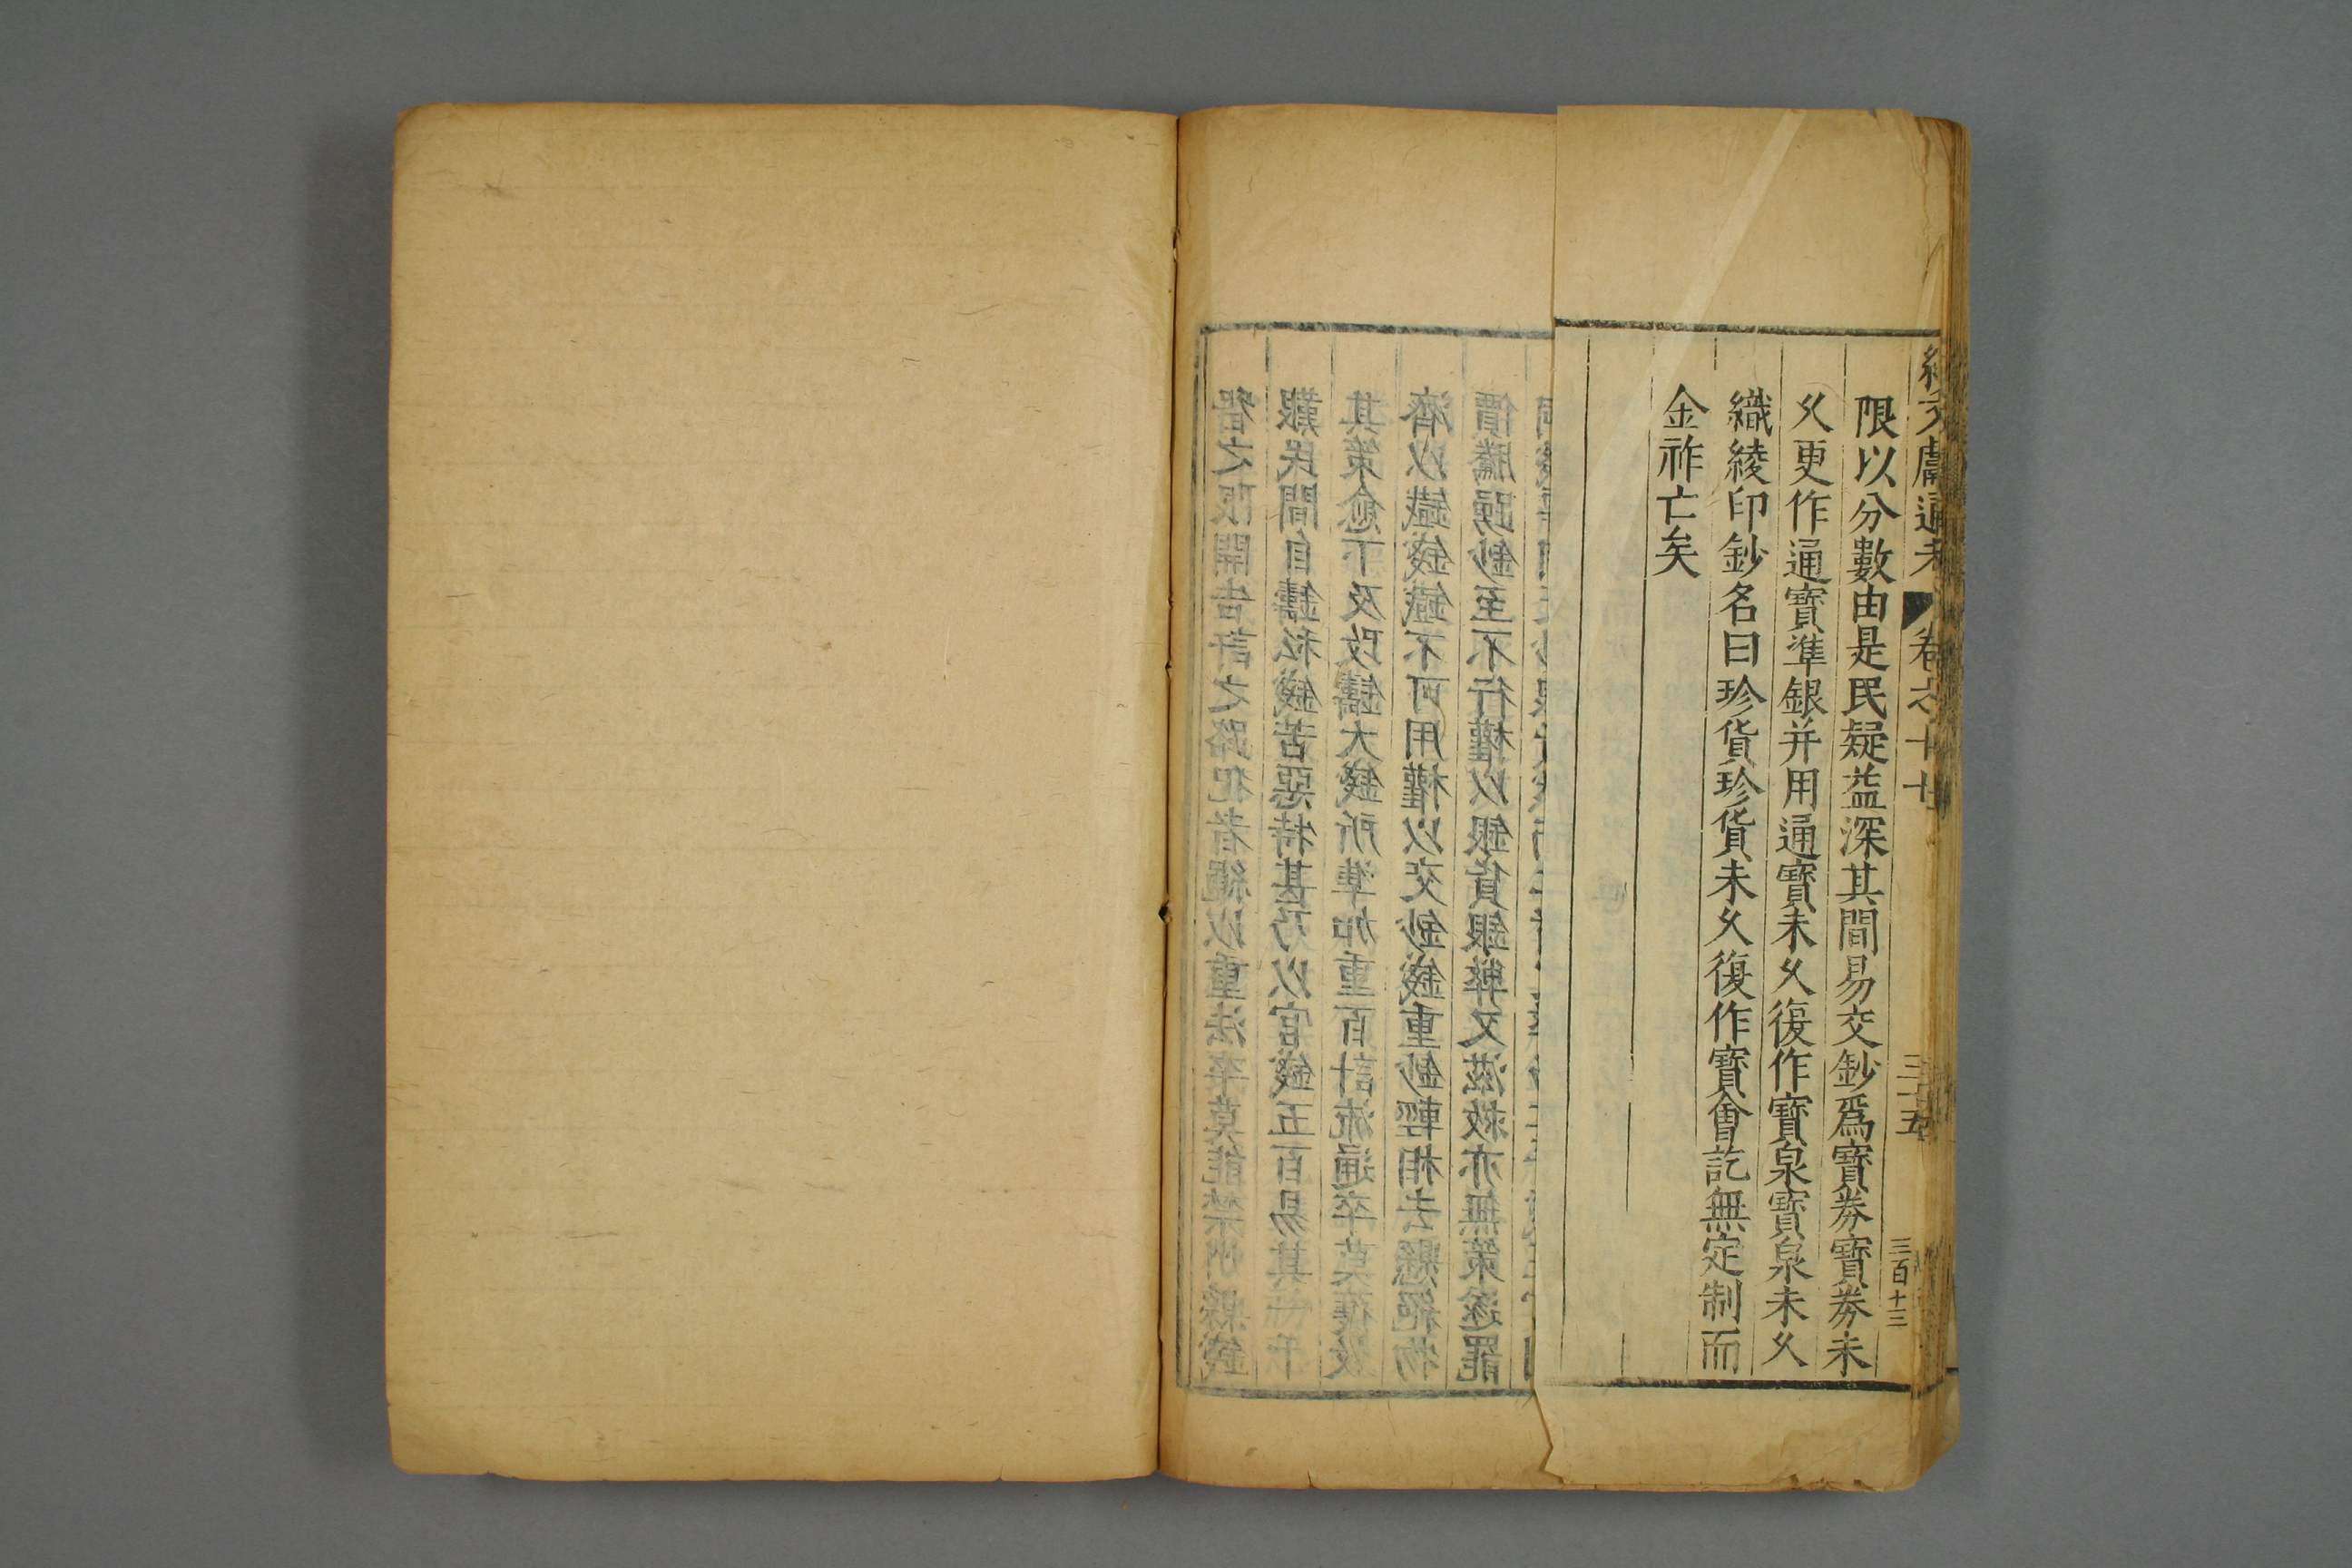 文獻通考 卷之十七
三百十三
限以分數由是民疑益深其間易交鈔爲寶券寶券未
久更作通寶準銀并用通寶未久復作寶泉寶泉未久
織綾印鈔名曰珍貨珍貨未久復作寶會訖無定制而
金祚亡矣
督之限開告訐之路犯者繩以重法卒莫能禁州縣錢
艱民間自鑄私錢苦惡特甚乃以官錢五百易其一千
其策愈下及改鑄大錢所準加重百計流通卒莫獲效
濟以鐵錢鐵不可用權以交鈔錢重鈔輕相去懸絕物
價騰踴鈔至不行權以銀貨銀弊又滋救亦無策遂罷